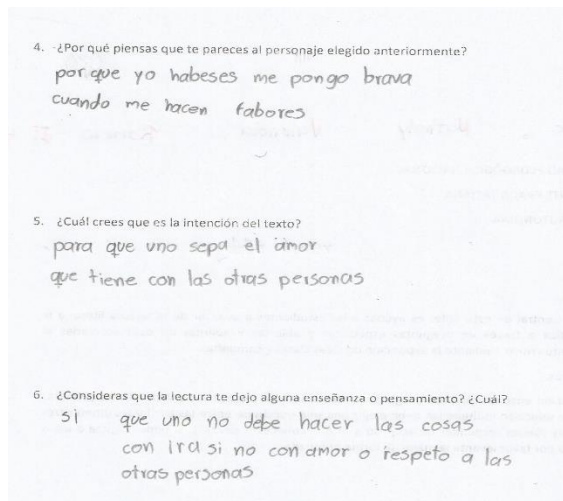 4. -¿Por qué piensas que te pareces al personaje elegido anteriormente?
por que yo habeses me pongo brava
cuando me hacen fabores
5. ¿Cuál crees que es la intención del texto?
para que uno sepa el amor
que tiene con las otras personas
6. ¿Consideras que la lectura te dejo alguna enseñanza o pensamiento? ¿Cuál?
si que uno no debe hacer las cosas
con ira si no con amor o respeto a las
otras personas